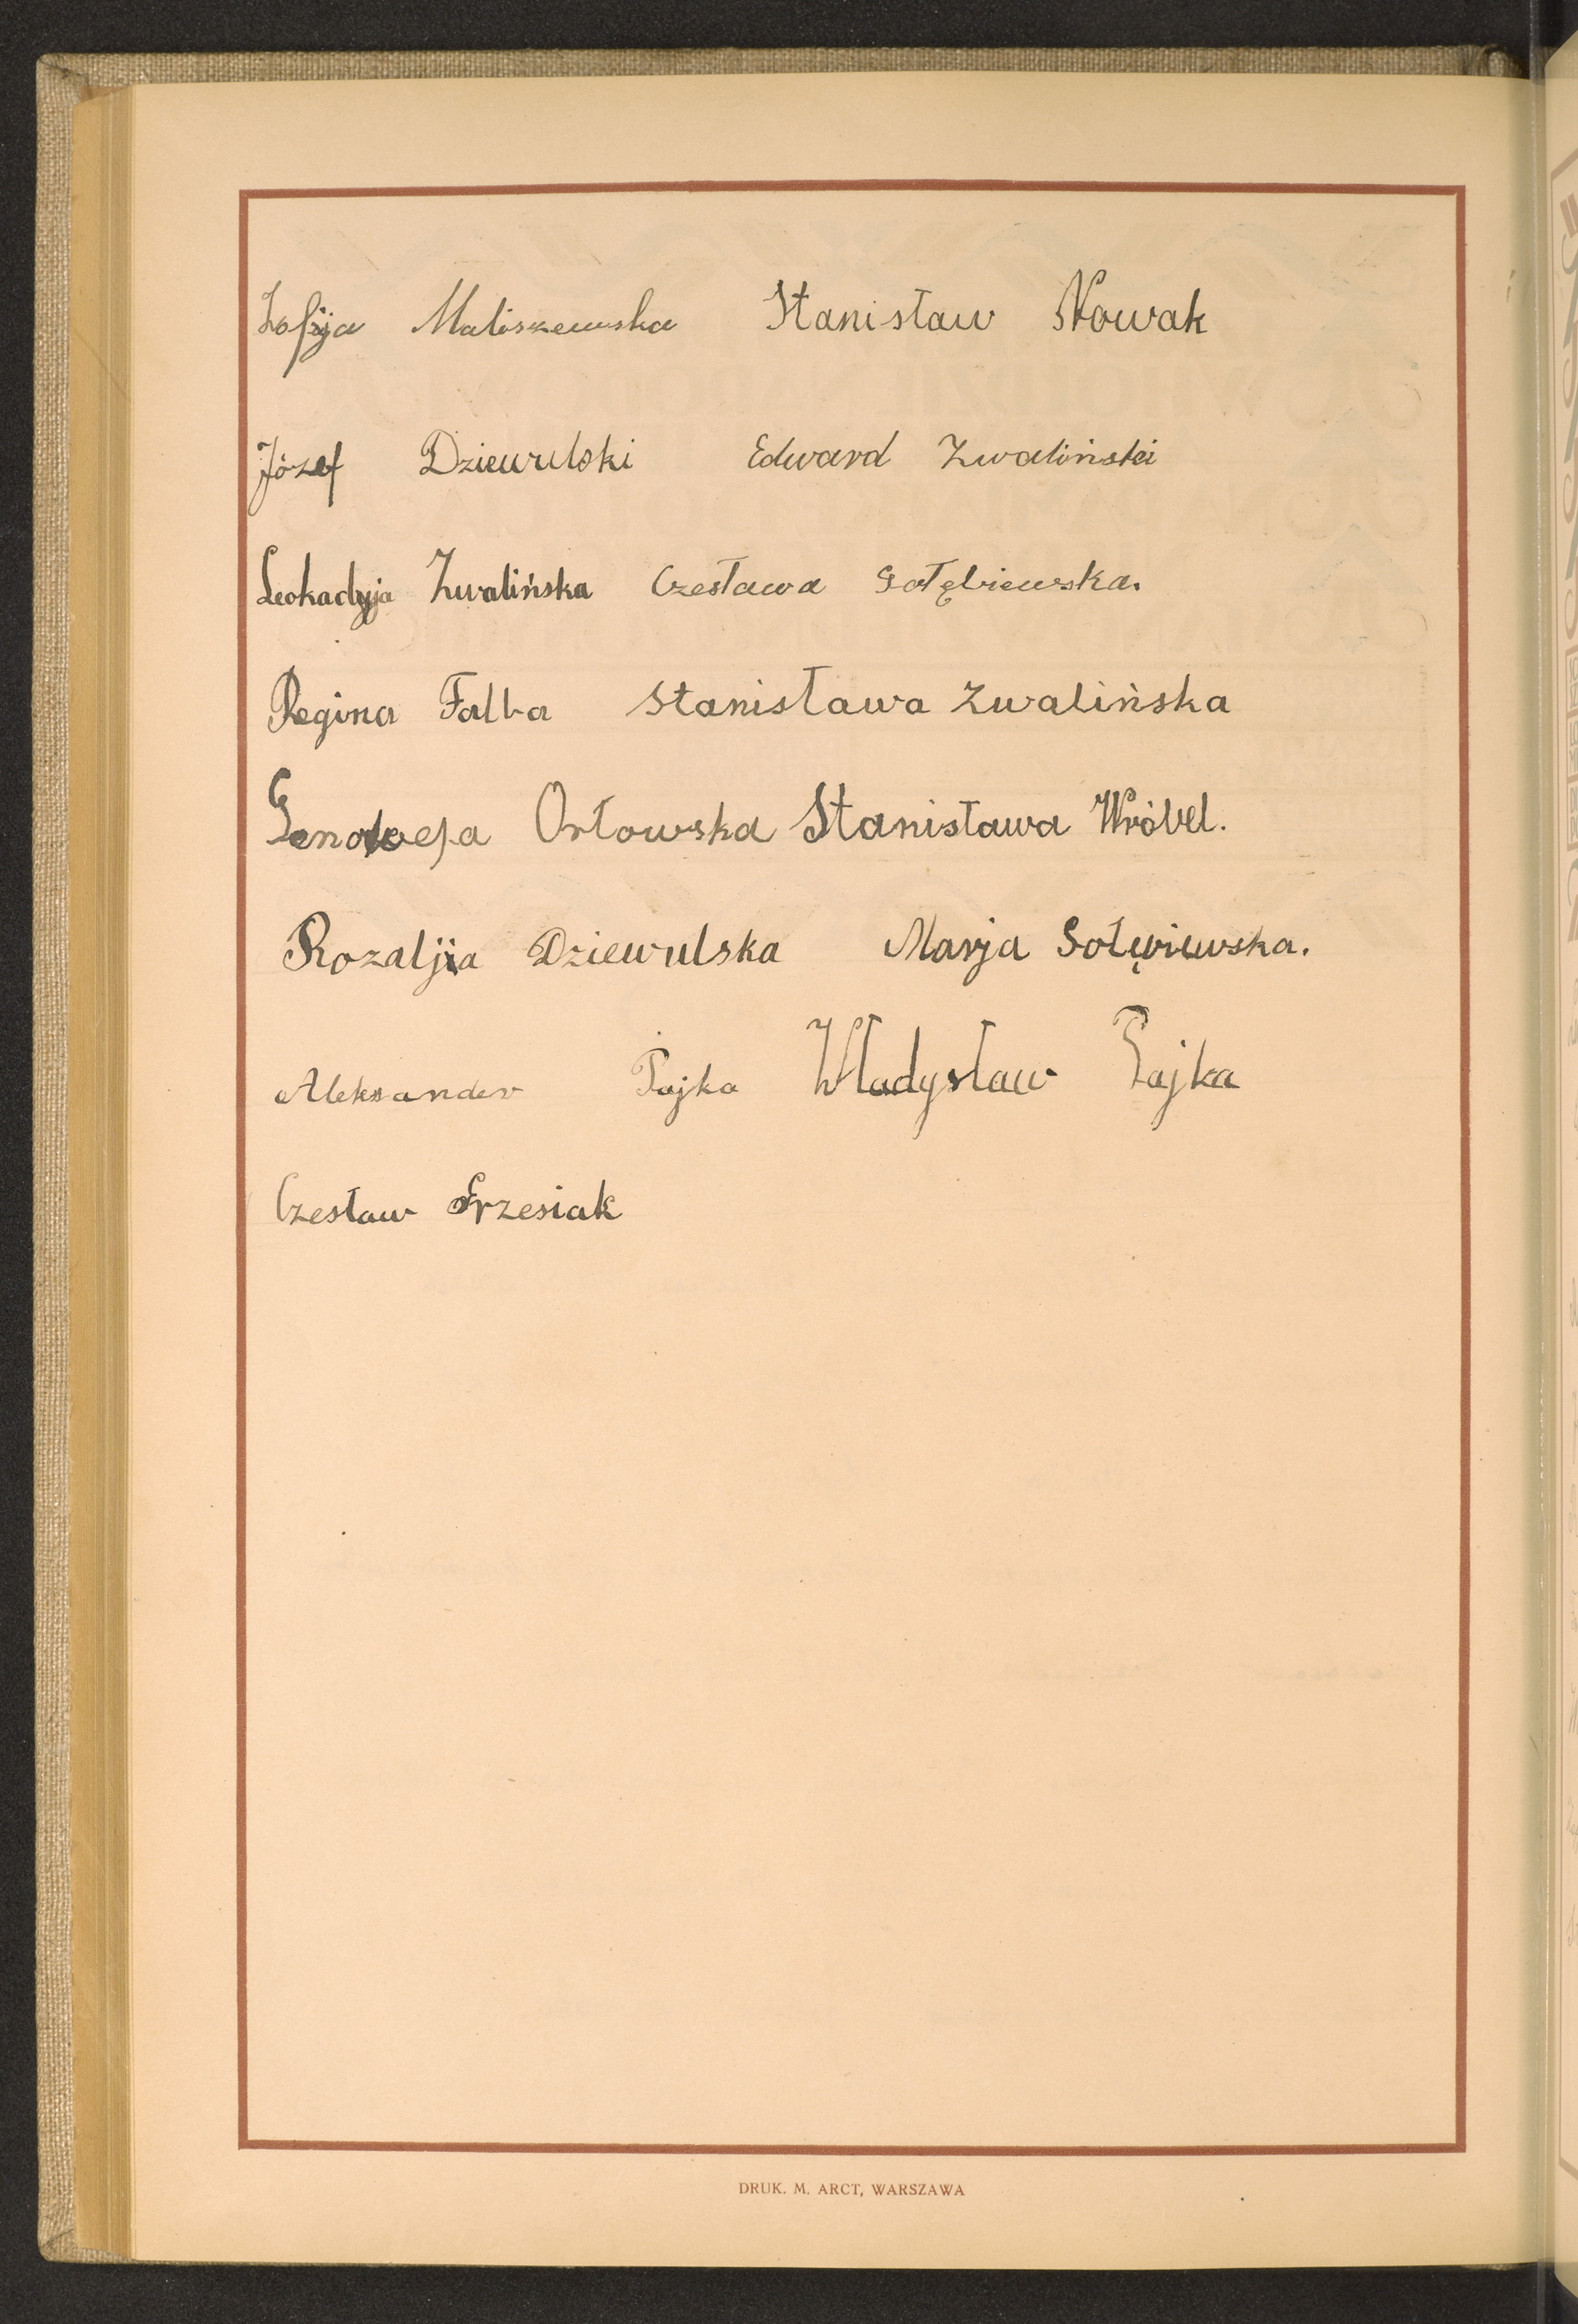 Zofija Maliszewska Stanisław Nowak
Józef Dziewulski Edward Zwaliński
Leokadyja Zwalińska Czesława Gołębiewska.
Regina Falba Stanisława Zwalińska
Orłowska Stanisława Wróbel.
Rozaljia Dziewulska Marja
Aleksander Pajka Władysław Pajka
Czesław Grzesiak
DRUK. M. ARCT, WARSZAWA